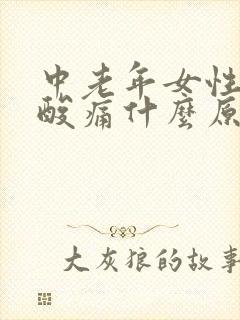 中老年女性
酸痛什麼原
大灰狼的故事